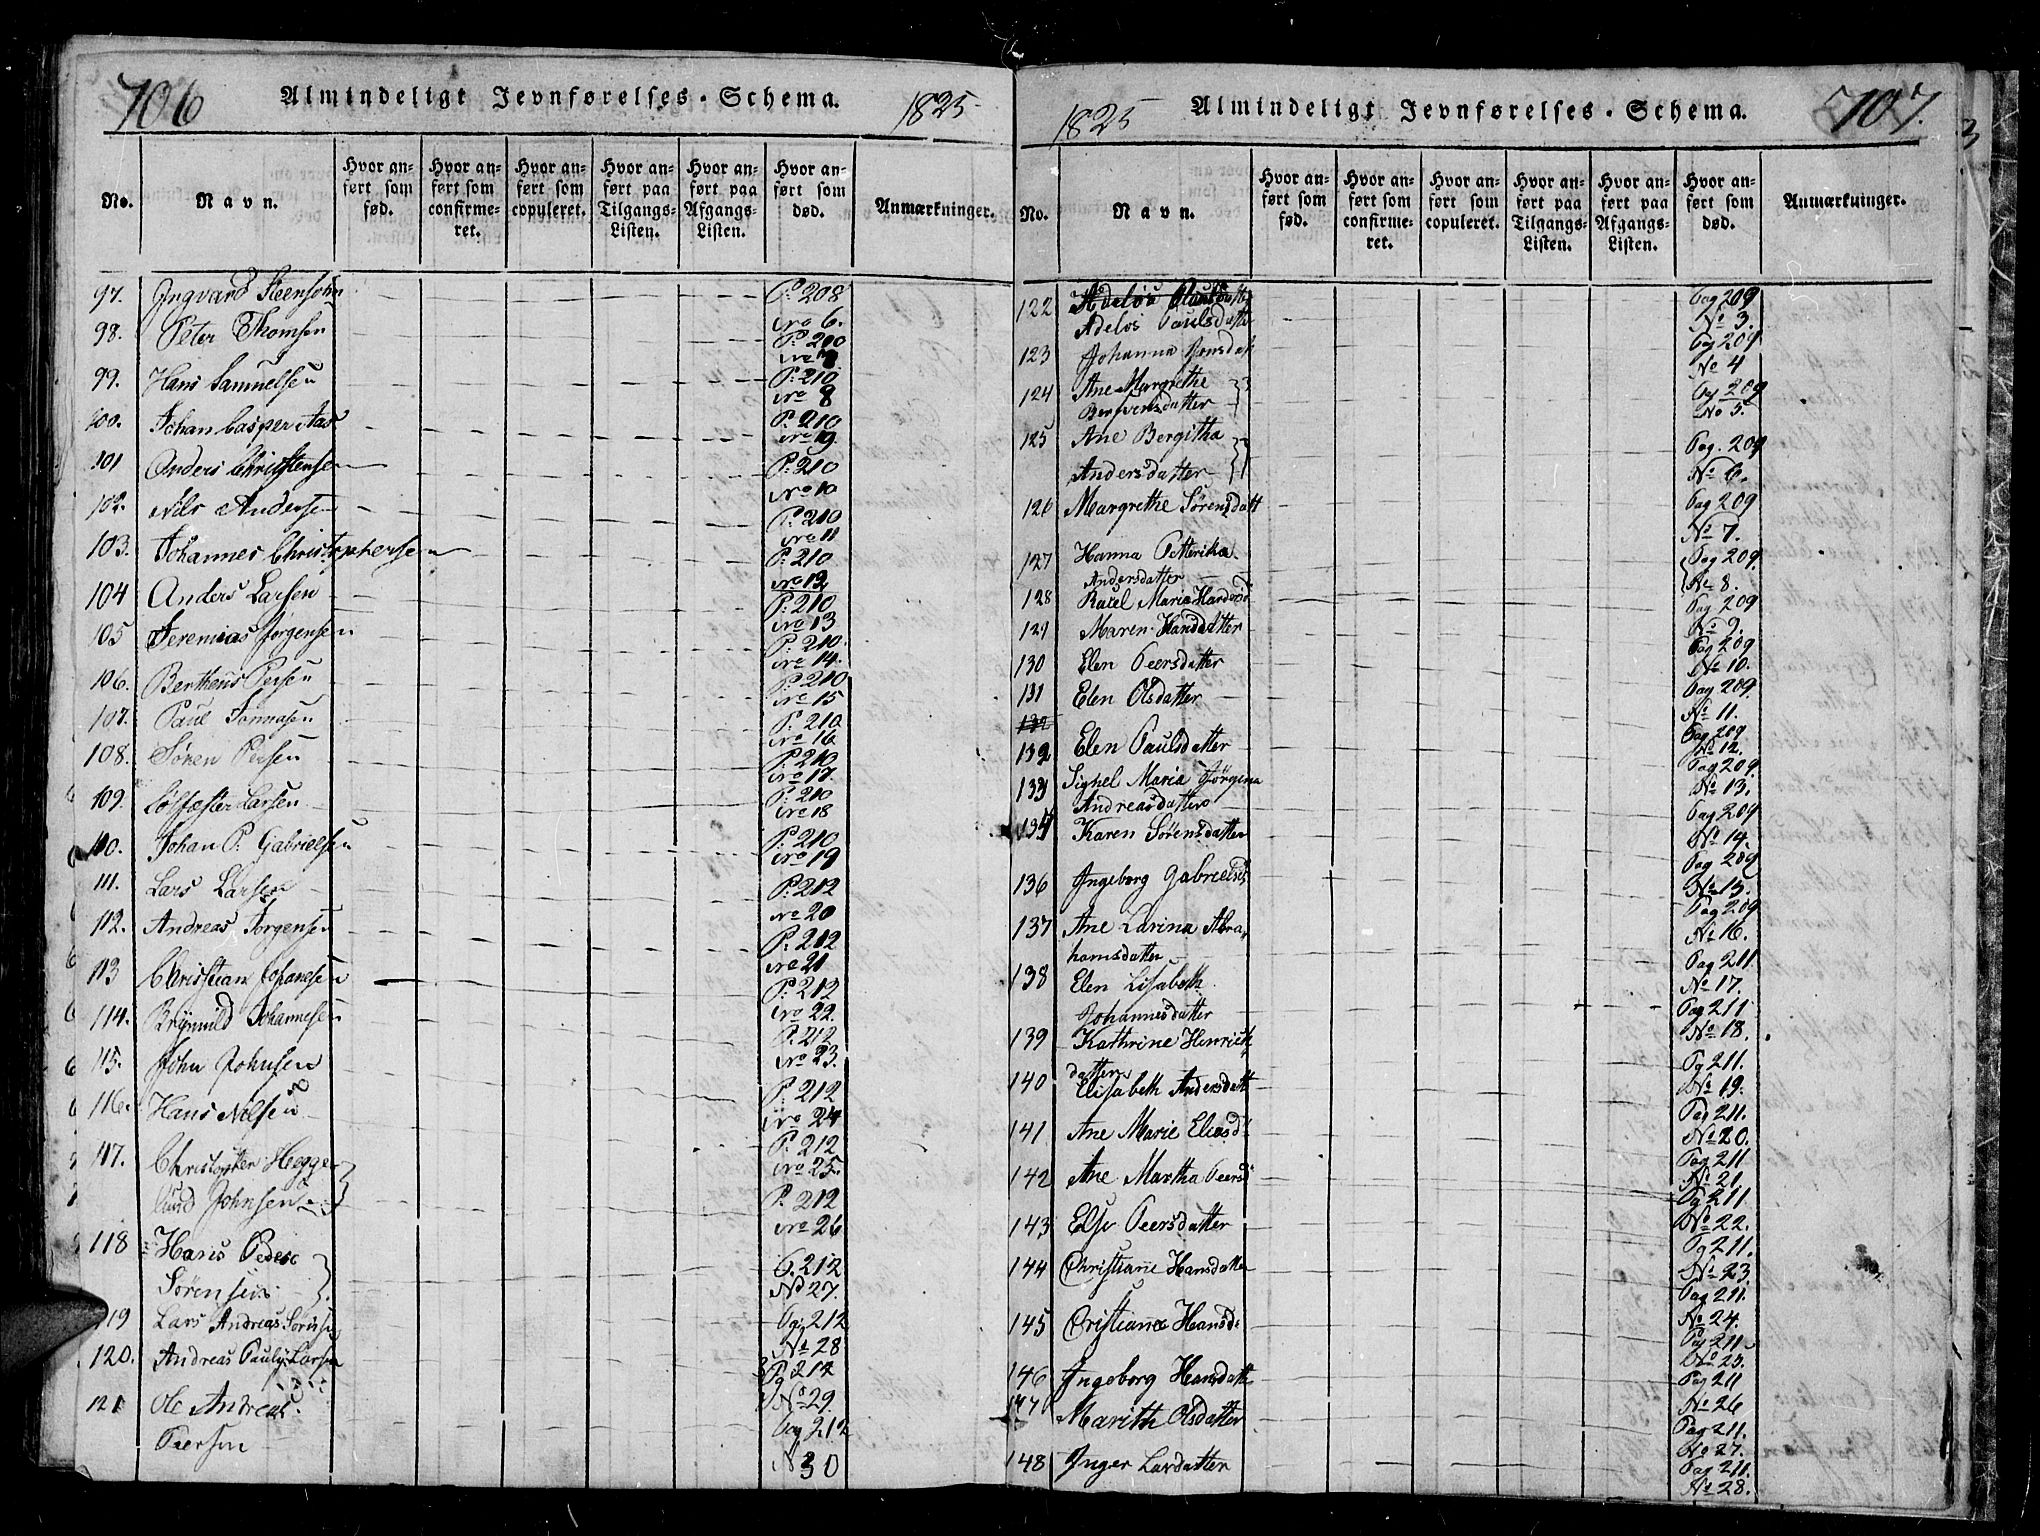 706 Almindeligt Jevnførelses-Schema. 1825
No. Navn. Hvor anført som fød. Hvor anført som confirmeret. Hvor anført som copuleret. Hvor anført paa Tilgangs-Listen. Hvor anført paa Afgangs-Listen. Hvor anført som død. Anmærkninger.
97. Ingvard Steensohn P: 208
No 6.
98. Peter Thomsen P: 210
No 7.
99. Hans Samuelsen P: 210
No 8
100. Johan Casper Aas P: 210
No 9.
101 Anders Christensen P: 210
No 10
102. Nils Andersen P: 210
No 11
103. Johannes Christophersen P: 210
No 12
104 Anders Larsen P: 210
No 13
105 Jeremias Jørgensen P: 210.
No 14.
106. Berthens Persen P: 210
No 15
107. Paul Tonnasen P: 210
No 16
108. Søren Persen P: 210
No 17.
109. Larsen P: 210
No 18
110. Johan P. Gabrielsen P: 210
No 19
111. Lars Larsen P: 212
No 20
112. Andreas Jørgensen P: 212
No 21
113 Christian Johansen P: 212
No 22.
114. Brynnild Johannesen P: 212
No 23.
115. John Johnsen P: 212
No 24
116. Hans Nilsen P: 212
No 25.
117. Christopher Hegge
lund Johnsen P: 212
No 26
118 Hans Peder
Sørensen P. 212
No 27.
119 Lars Andreas Pag 212
No 28
120. Andreas Larsen Pg 212
No 29.
121 Ole Andreas Pag 212
Peersen No 30
1825 Almindeligt Jevnførelses-Schema. 707.
No. Navn. Hvor anført som fød. Hvor anført som confirmeret. Hvor anført som copuleret. Hvor anført paa Tilgangs-Listen. Hvor anført paa Afgangs-Listen. Hvor anført som død. Anmærkninger.
122 Adelos Paulsdatter Pag 209
Adelos Paulsdatter No 3.
123 Johanna Jensdat Pag 209
No 4
124 Ane Margrethe Pag 209
datter No 5.
125 Ane Bergitha Pag. 209
Andersdatter No 6.
126 Margrethe Sørensdatt Pag 209
No 7.
127 Hanna Petterika Pag 209
Andersdatter No 8.
128 Rakel Maria Pag 209
129 Maren Hansdatter No 9.
130 Elen Peersdatter Pag 209
No 10.
131 Elen Olsdatter Pag 209.
132 No 11.
132 Elen Paulsdatter Pag 209
No 12.
133 Sighel Maria Jørgina Pag 209
Andreasdatter No 13.
134 Karen Sørensdatter Pag 209
No 14.
136 Ingeborg Gabrielsd Pag 209
No 15.
137 Ane Larina Abra Pag 209
hamsdatter No 16.
138 Elen Lisabeth Pag 211.
Johannesdatter No 17.
139 Kathrine Henrich Pag 211
datter No 18.
140 Elisabeth Andersdatt Pg 211.
No 19.
141 Ane Marie Eliasd Pag 211.
No 20.
142 Ane Martha Peersd Pag 211
No 21.
143 Else Peersdatter Pg 211.
No 22.
144 Christiane Hansdatter Pg 211.
No 23.
145 Cristiane Hansd: Pag 211.
No 24.
146 Ingeborg Hansdatt Pag 211
No 25.
147 Marith Olsdatter Pag 211
No 26
148 Inger Larsdatter Pag 211.
No 27.
Pag 211.
No 28.